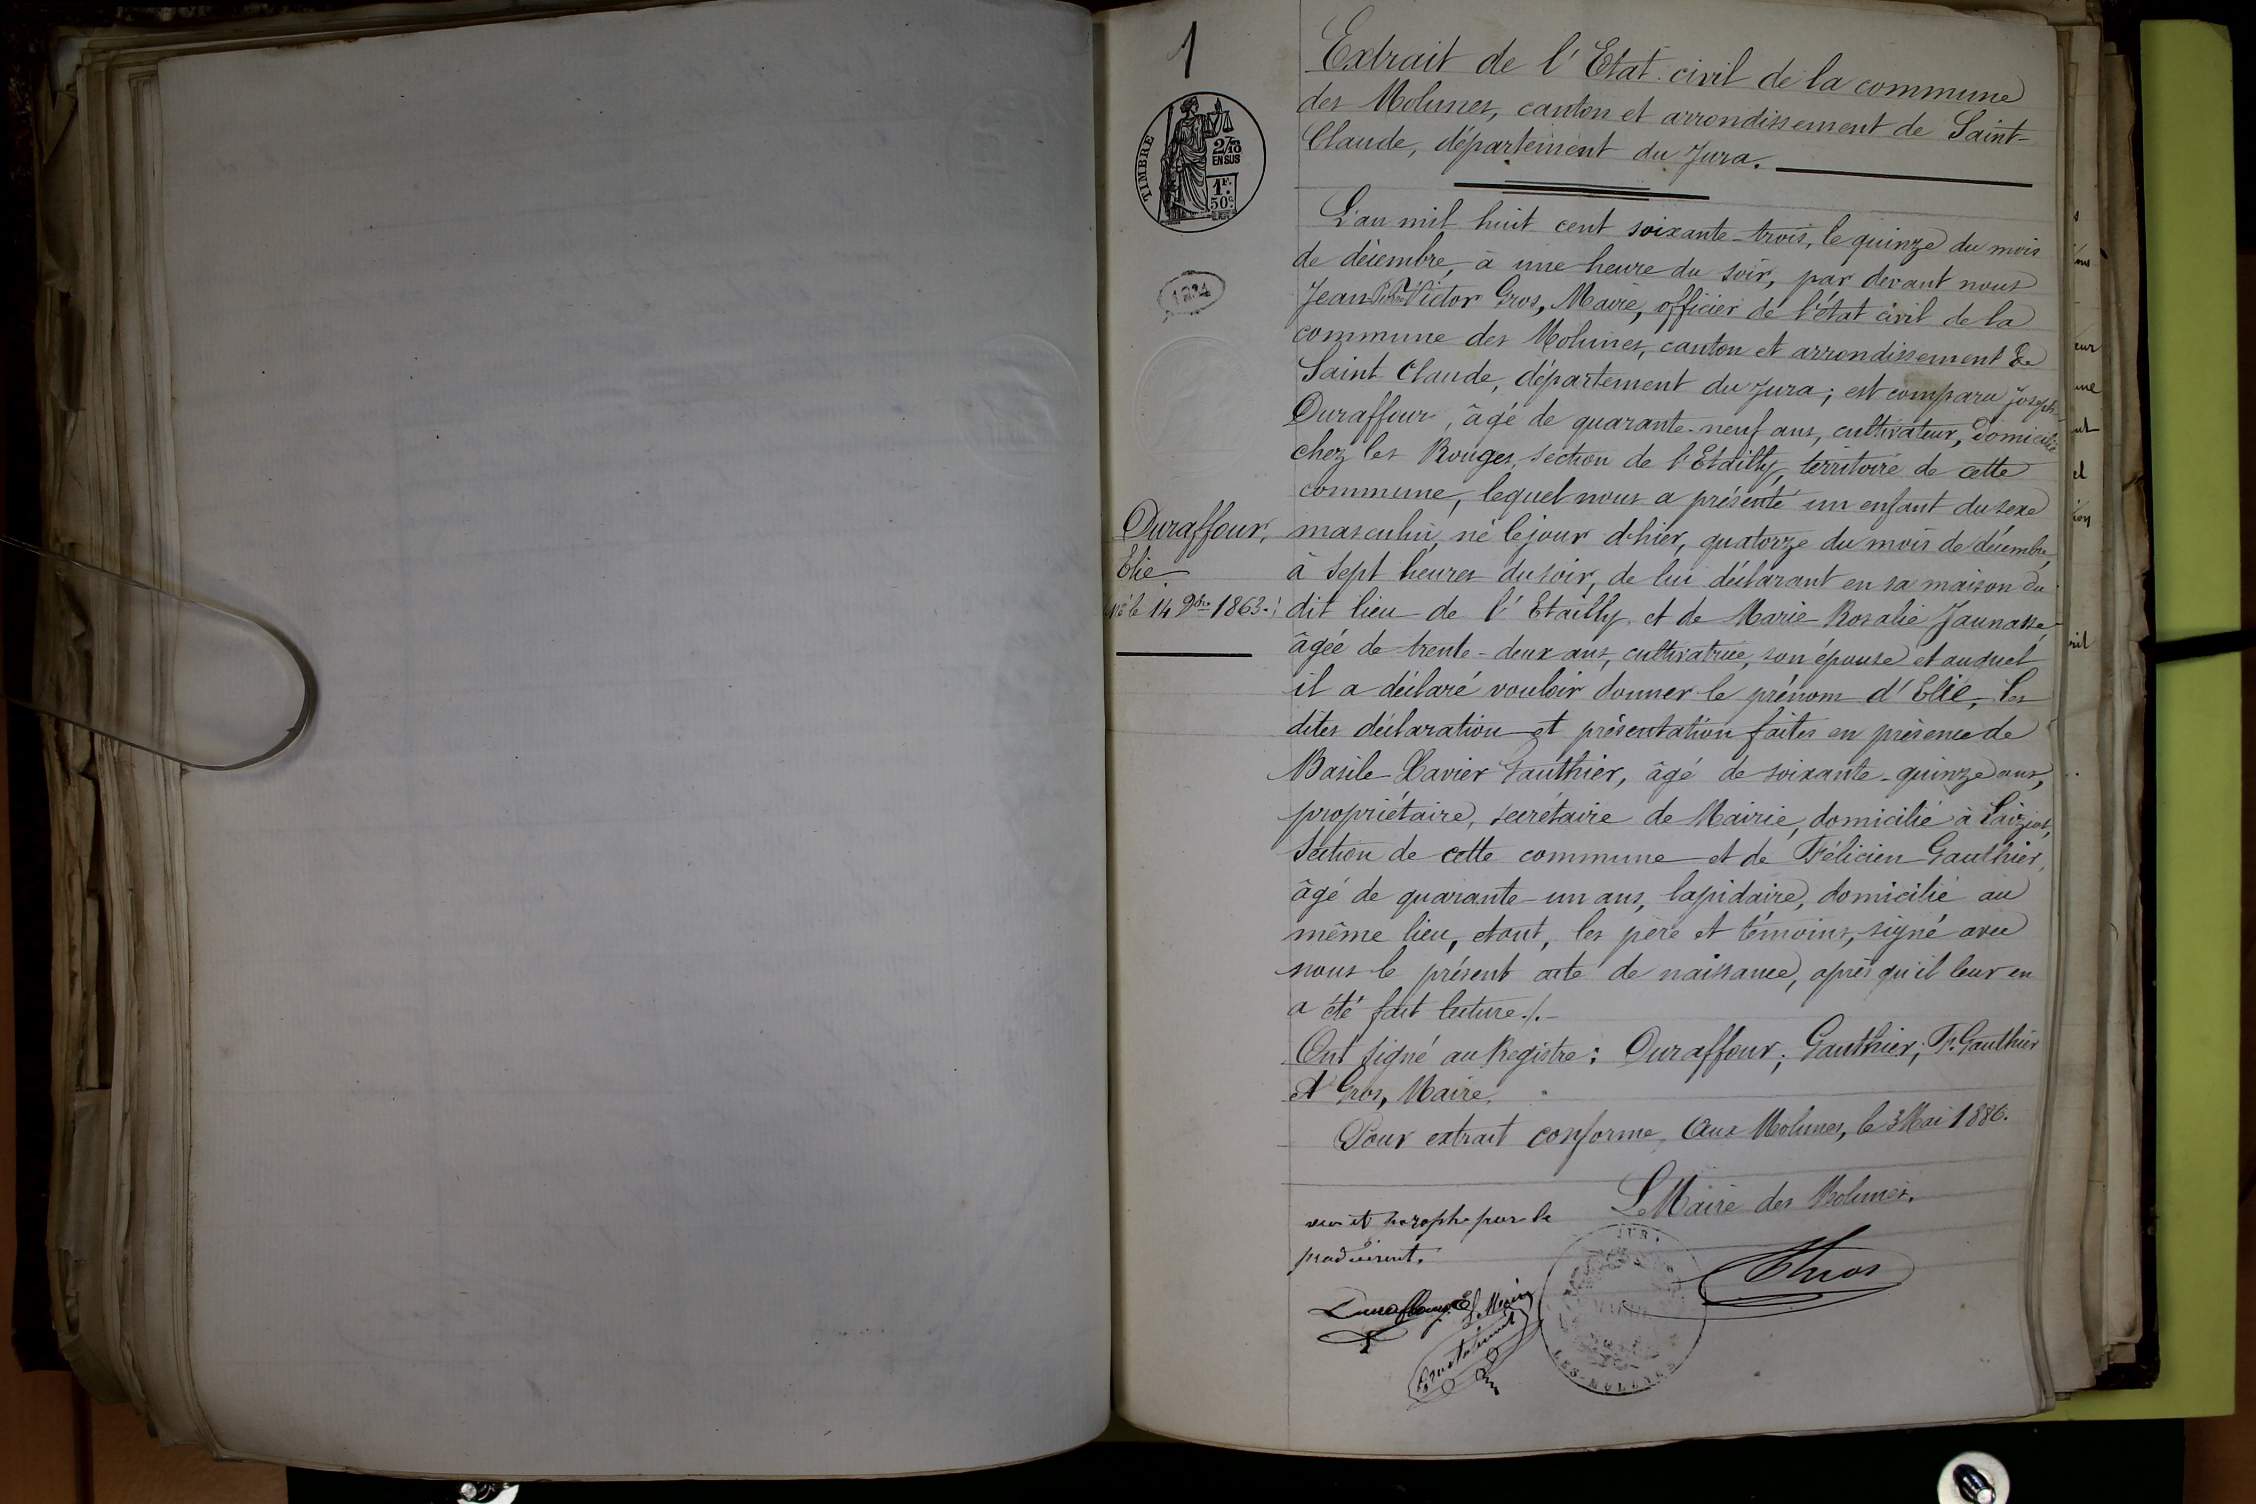 1
TIMBRE
2/10
EN SUS
1F.
50c.
Extrait de l'Etat civil de la commune
des Molunes, canton et arrondissement de Saint-
Claude, département du Jura.
L'an mil huit cent soixante-trois, le quinze du mois
de décembre, à une heure du soir, par devant nous
Jean Victor Gros, Maire, officier de l'état civil de la
commune des Molunes, canton et arrondissement de
Saint Claude, département du Jura; est comparu Joseph
Duraffour, âgé de quarante-neuf ans, cultivateur, domicilié
chez les Rouges, section de l'Etailly, territoire de cette
commune, lequel nous a présenté un enfant du sexe
masculin, né le jour d'hier, quatorze du mois de décembre,
à sept heures du soir, de lui déclarant en sa maison du
dit lieu de l'Etailly, et de Marie Rosalie
âgée de trente-deux ans, cultivatrice, son épouse et auquel
il a déclaré vouloir donner le prénom d'Elie, Les
dites déclaration et présentation faites en présence de
Basile Xavier Gauthier, âgé de soixante-quinze ans,
propriétaire, secrétaire de Mairie, domicilié à
section de cette commune et de Félicien Gauthier,
âgé de quarante-un ans, lapidaire, domicilié au
même lieu, et ont, les père et témoins, signé avec
nous le présent acte de naissance, après qu'il leur en
a été fait lecture./.
Ont signé au Registre: Duraffour; Gauthier; F. Gauthier
et Gros, Maire.
Pour extrait conforme, Aux Molunes, le 3 Mai 1886.
Le Maire des Molunes.
Duraffour,
Elie
né le 14 Xbre 1863.
vu et par le
JURA
MAIRIE
LES MOLUNES